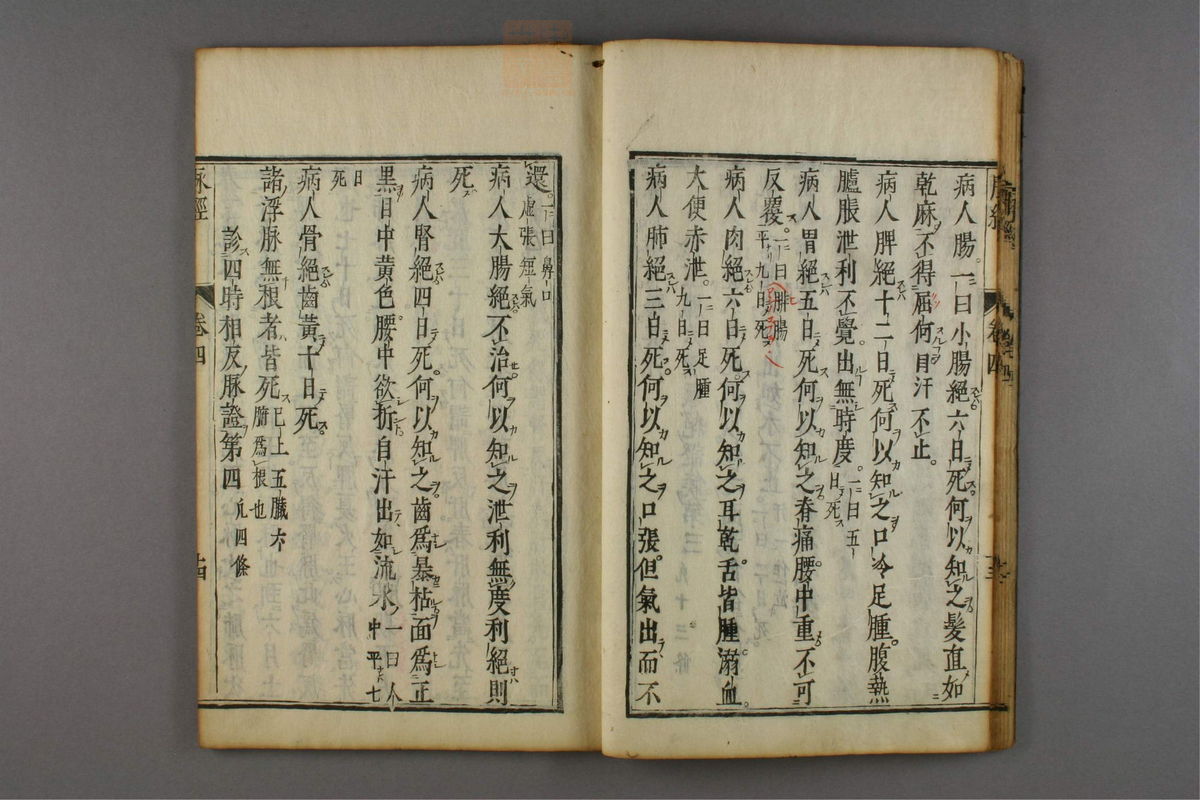 病人腸一曰小腸絕六日死何以知之髮直如
乾麻不得屈伸自汗不止
病人脾絕十二日死何以知之口冷足腫腹熱
臚脹泄利不覺出無時度一曰五日死
病人胃絕五日死何以知之脊痛腰中重不可
反覆一曰腓腸平九日死
病人肉絕六日死何以知之耳乾舌皆腫溺血
大便赤泄一曰足腫九日死
病人肺絕三日死何以知之口張但氣出而不
還一曰鼻口虛張短氣
病人大腸絕不治何以知之泄利無度利絕則
死
病人腎絕四日死何以知之齒為暴枯面為正
黑目中黃色腰中欲折自汗出如流水一曰人中平七
日死
病人骨絕齒黃十日死
諸浮脉無根者皆死已上五臟六腑為根也
診四時相反脉證第四凡四條
脉經
卷四
十四